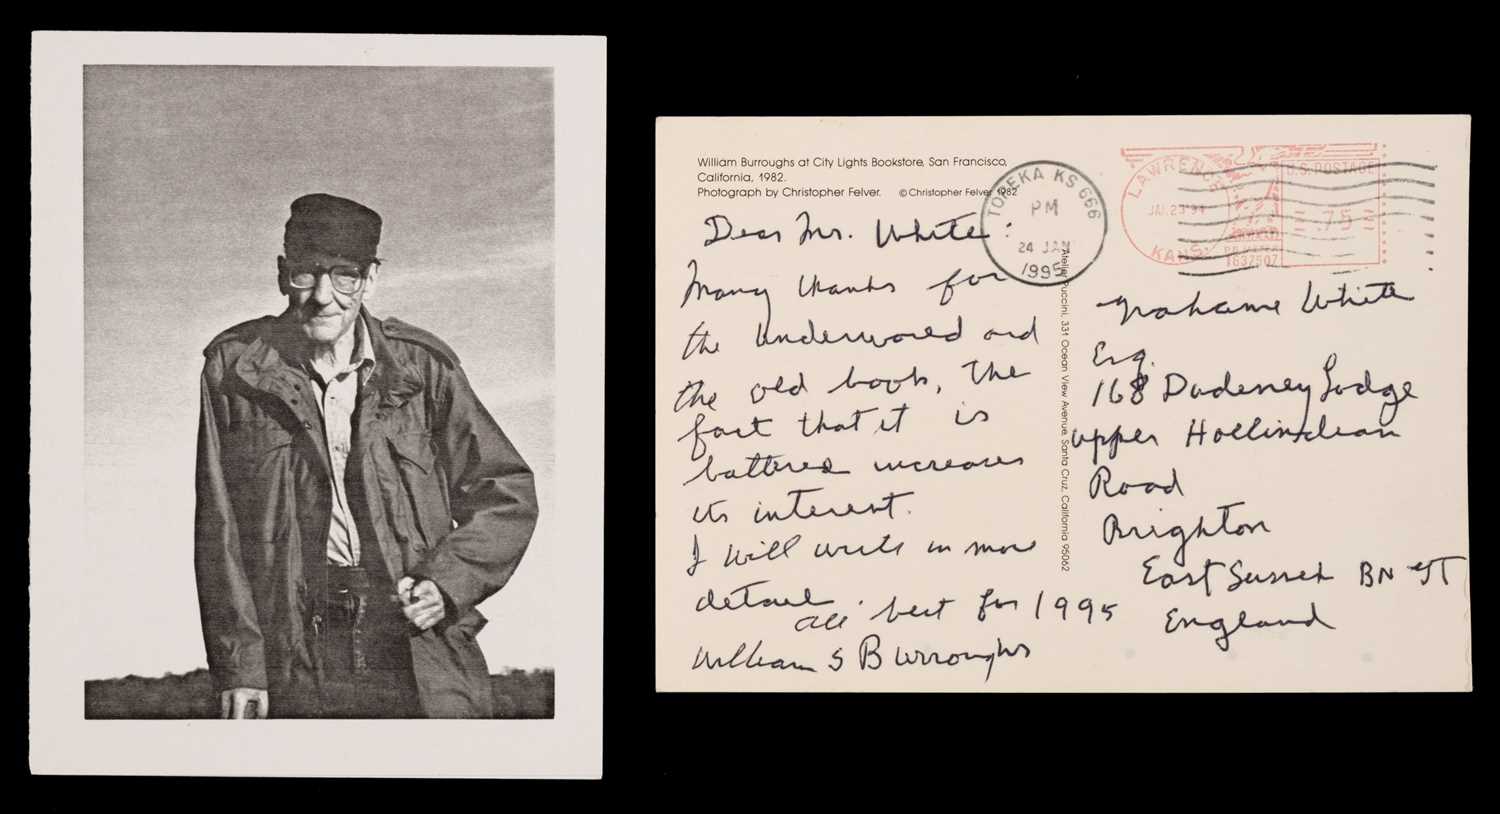 William Burroughs at City Lights Bookstore, San Francisco,
California, 1982.
Photograph by Christopher Felver. © Christopher Felver 1982
TOPEKA KS 666
PM
24 JAN
1995
LAWRENCE
JAN.23'94
KANS.
U.S. POSTAGE
.75
P.B. METER
1637507
Dear Mr. White:
Many thanks for
the underworld and
the old book, The
fact that it is
battered increases
its interest.
I will write in more
detail.
all best for 1995
William S Burroughs
Atelier Puccini, 331 Ocean View Avenue, Santa Cruz, California 95062
Grahame White
Esq.
168 Dudeney Lodge
upper Hollindean
Road
Brighton
East Sussex BN
England